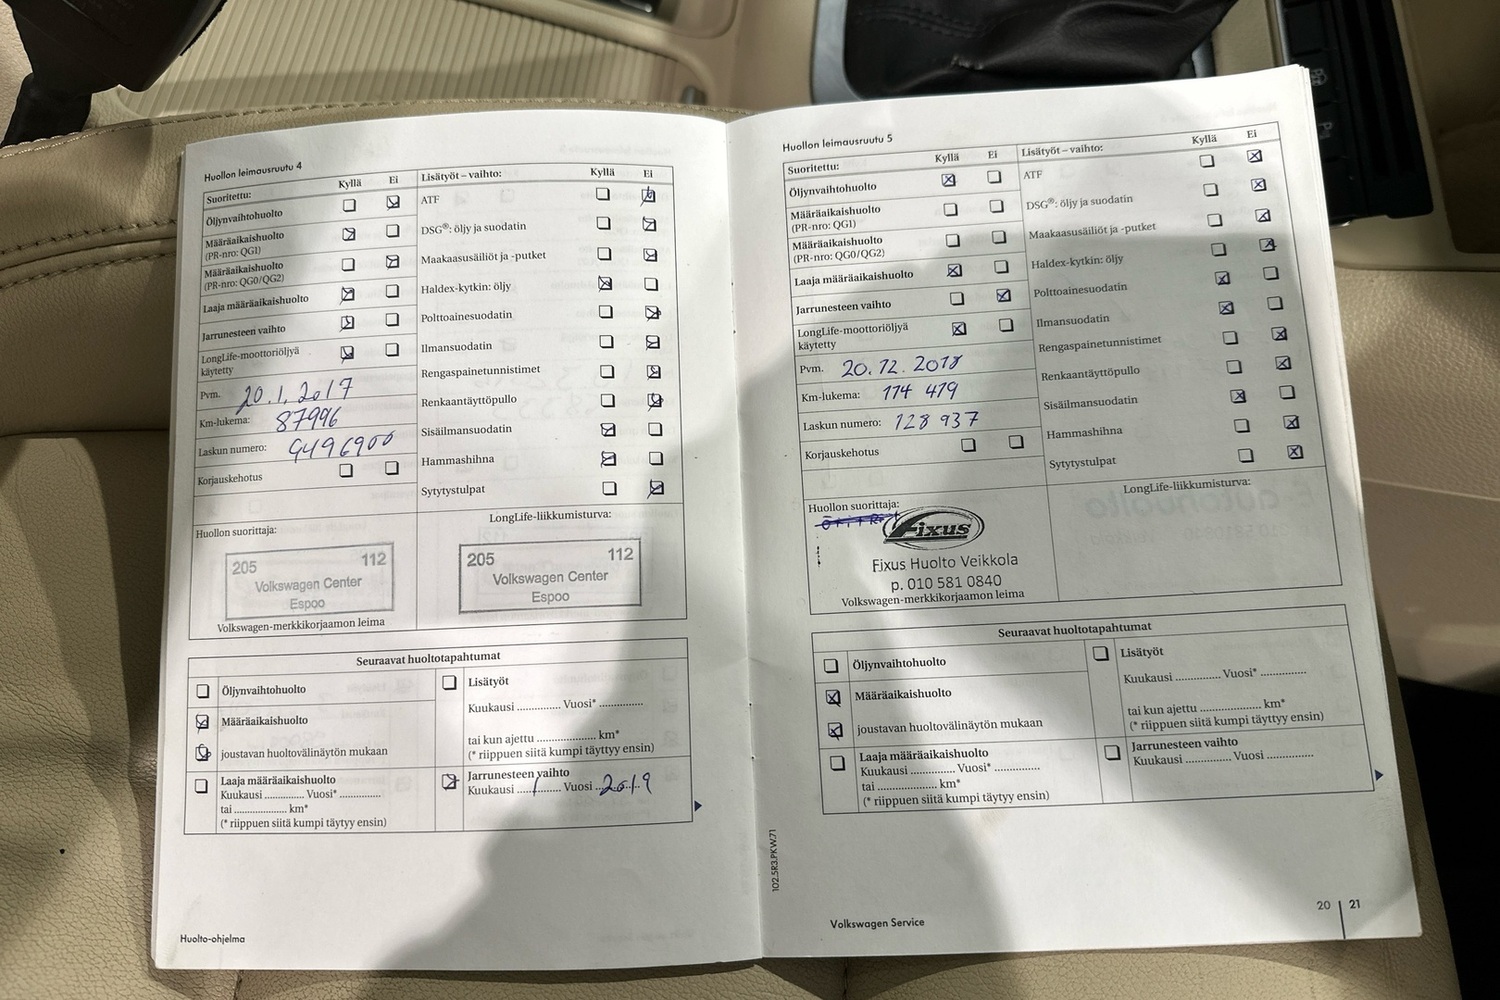 Huollon leimausruutu 4
Suoritettu: Kyllä Ei
Öljynvaihtohuolto
Määräaikaishuolto
(PR-nro: QG1)
Määräaikaishuolto
(PR-nro: QG0/QG2)
Laaja määräaikaishuolto
Jarrunesteen vaihto
LongLife-moottoriöljyä
käytetty
Pvm. 20.1.2017
Km-lukema: 87996
Laskun numero: 9496900
Korjauskehotus
Lisätyöt – vaihto: Kyllä Ei
ATF
DSG®: öljy ja suodatin
Maakaasusäiliöt ja -putket
Haldex-kytkin: öljy
Polttoainesuodatin
Ilmansuodatin
Rengaspainetunnistimet
Renkaantäyttöpullo
Sisäilmansuodatin
Hammashihna
Sytytystulpat
Huollon suorittaja:
205 112
Volkswagen Center
Espoo
Volkswagen-merkkikorjaamon leima
LongLife-liikkumisturva:
205 112
Volkswagen Center
Espoo
Seuraavat huoltotapahtumat
Öljynvaihtohuolto
Määräaikaishuolto
joustavan huoltovälinäytön mukaan
Laaja määräaikaishuolto
Kuukausi ............ Vuosi* ..............
tai ................... km*
(* riippuen siitä kumpi täyttyy ensin)
Lisätyöt
Kuukausi ............. Vuosi* ..............
tai kun ajettu ..................... km*
(* riippuen siitä kumpi täyttyy ensin)
Jarrunesteen vaihto
Kuukausi ....1....... Vuosi ...2019
Huolto-ohjelma
Huollon leimausruutu 5
Suoritettu: Kyllä Ei
Öljynvaihtohuolto
Määräaikaishuolto
(PR-nro: QG1)
Määräaikaishuolto
(PR-nro: QG0/QG2)
Laaja määräaikaishuolto
Jarrunesteen vaihto
LongLife-moottoriöljyä
käytetty
Pvm. 20.12.2018
Km-lukema: 174 479
Laskun numero: 128 937
Korjauskehotus
Lisätyöt – vaihto: Kyllä Ei
ATF
DSG®: öljy ja suodatin
Maakaasusäiliöt ja -putket
Haldex-kytkin: öljy
Polttoainesuodatin
Ilmansuodatin
Rengaspainetunnistimet
Renkaantäyttöpullo
Sisäilmansuodatin
Hammashihna
Sytytystulpat
Huollon suorittaja:
Fixus
Fixus Huolto Veikkola
p. 010 581 0840
Volkswagen-merkkikorjaamon leima
LongLife-liikkumisturva:
Seuraavat huoltotapahtumat
Öljynvaihtohuolto
Määräaikaishuolto
joustavan huoltovälinäytön mukaan
Laaja määräaikaishuolto
Kuukausi ............ Vuosi* ..............
tai ................... km*
(* riippuen siitä kumpi täyttyy ensin)
Lisätyöt
Kuukausi ............. Vuosi* ..............
tai kun ajettu ..................... km*
(* riippuen siitä kumpi täyttyy ensin)
Jarrunesteen vaihto
Kuukausi ............. Vuosi ..............
102.5R3.PKW.71
Volkswagen Service
20 21